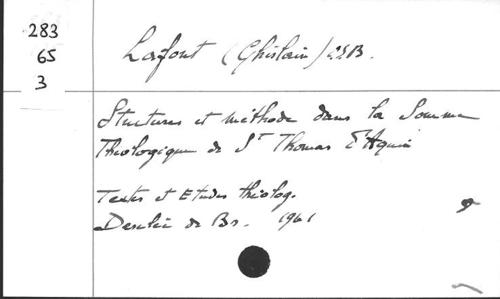 283
65
3
Lafont (Ghislain) O.S.B.
Structures et méthode dans la Somme
Théologique de St Thomas d'Aquin
Textes et Etudes théolog.
Desclée de Br. 1961